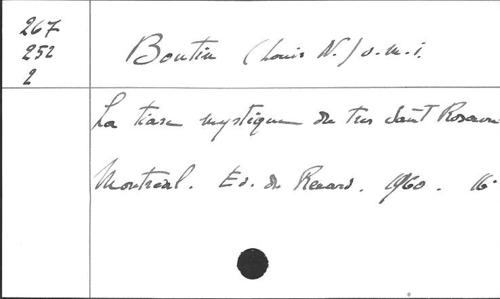 267
252
2
Boutin (Louis N.) o.m.i.
La tiare mystique du tres Saint Rosaire
Montreal. Ed. du Renard. 1960. 16°